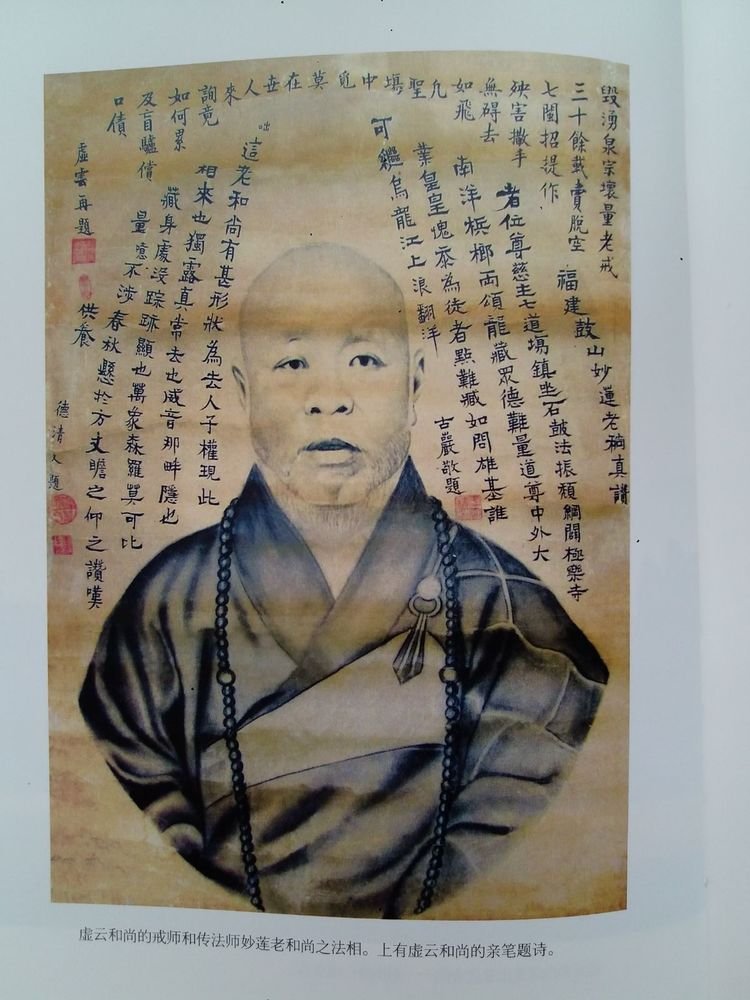 毀湧泉宗壞量老戒
三十餘載賣脫空
七閩招提作
殃害撒手
無碍去
如飛
凡聖塡中覓莫在世人來
詢竟
如何累
及盲驢償
口債
虛雲再題
福建鼓山妙蓮老和尚真讚
者位尊慈主七道場鎮坐石皷法振頹綱闢極樂寺
南洋梹榔兩頌龍藏眾德難量道尊中外大
業皇皇愧忝為徒者點難臧如問雄基誰
可繼烏龍江上浪翻洋
古巖敬題
咄
這老和尚有甚形狀為去人子權現此
相來也獨露真常去也威音那畔隱也
藏身處沒踪跡顯也萬象森羅莫可比
量噫不涉春秋懸於方丈瞻之仰之讚嘆
供養
德清又題
虚云和尚的戒师和传法师妙莲老和尚之法相。上有虚云和尚的亲笔题诗。